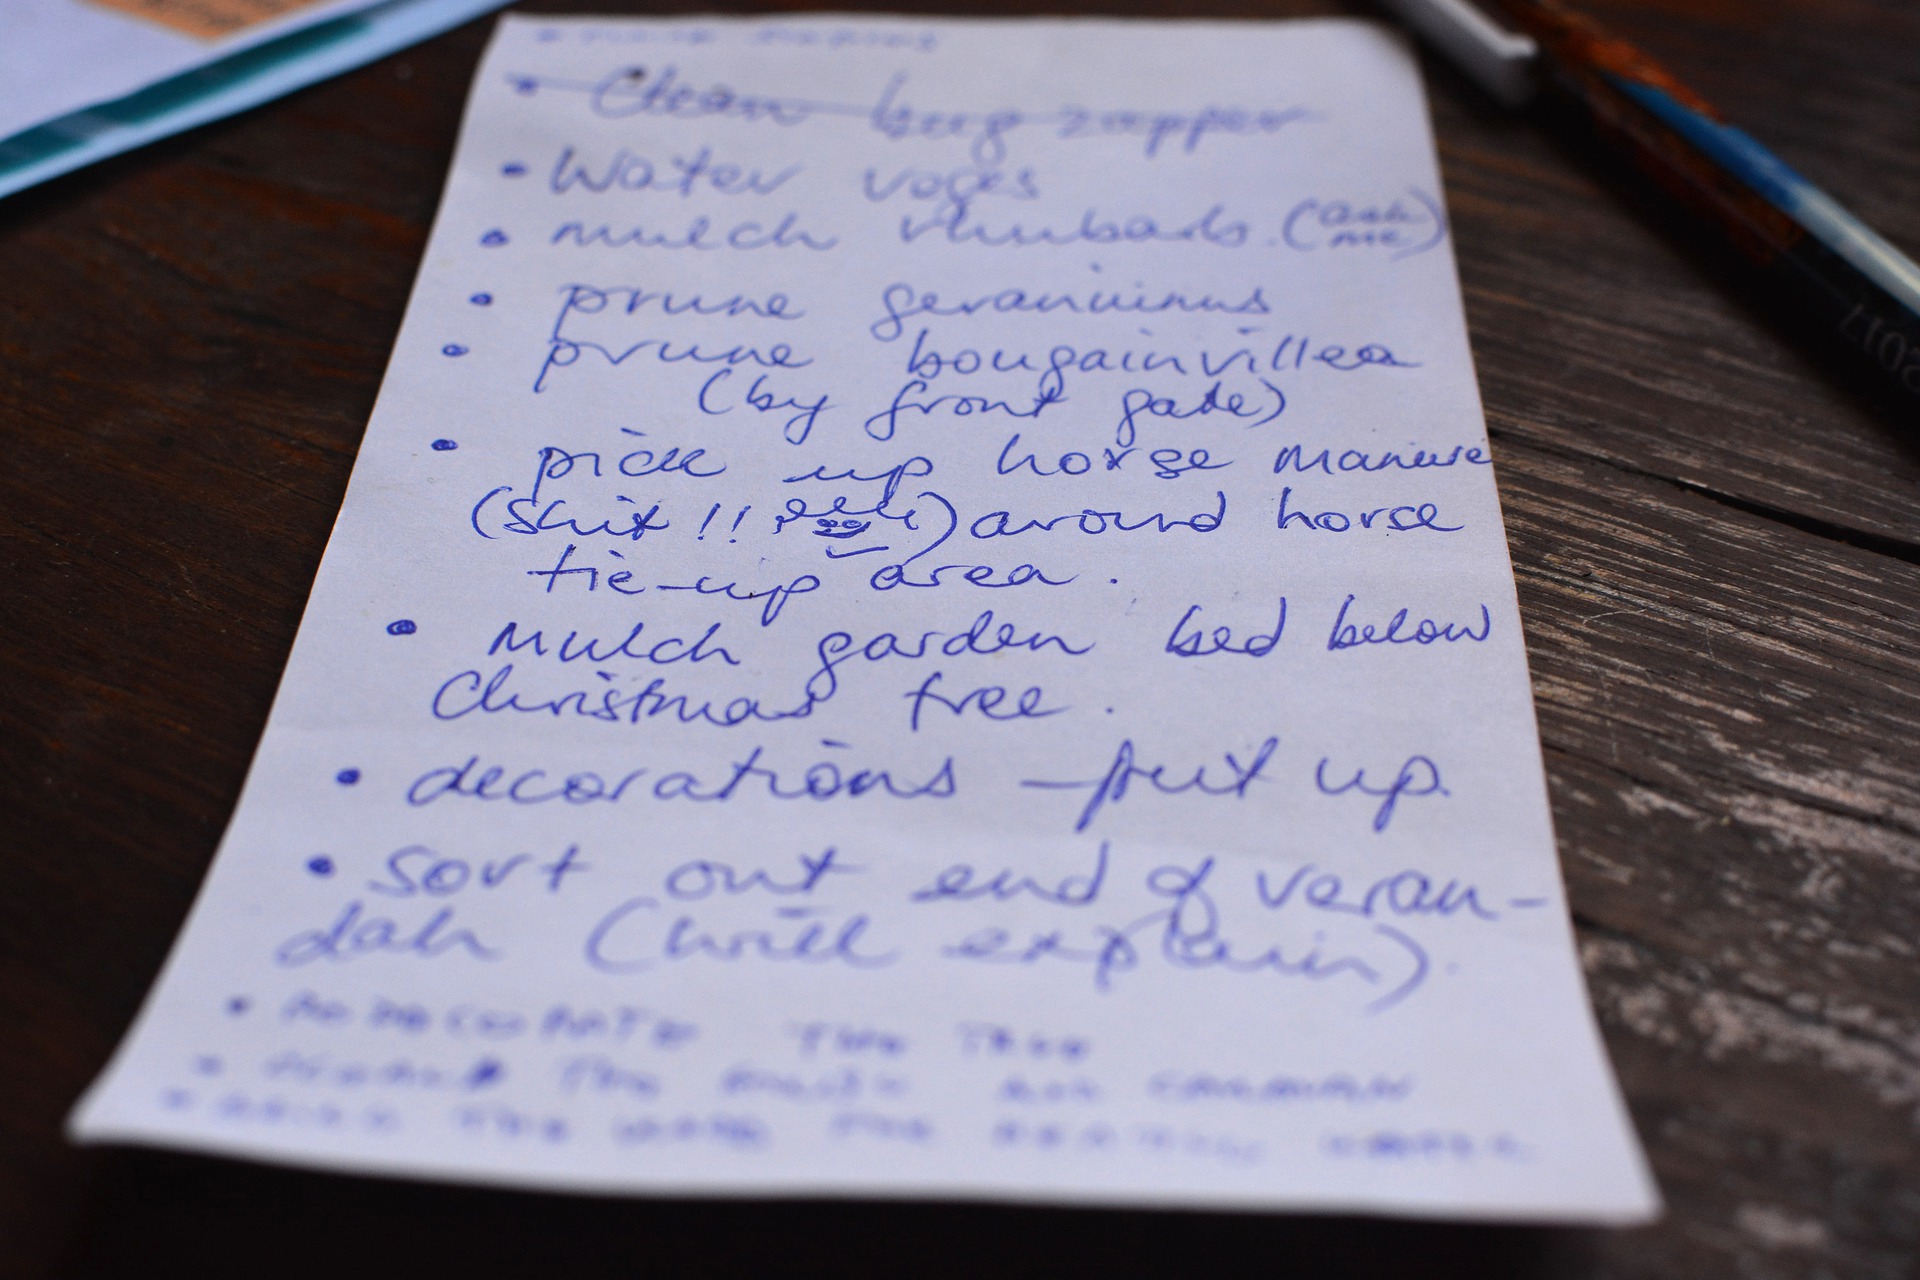 • Clean bug zapper
• Water voges
• mulch rhubarb. (ask me)
• prune geraniums
• prune bougainvillea
(by front gate)
• pick up horse manure
(shit !! ) around horse
tie-up area.
• Mulch garden bed below
Christmas tree.
• decorations - put up.
• sort out end of veran-
dah (will explain).
• THE TREE
• THE CARAVAN
• THE FOR
2017